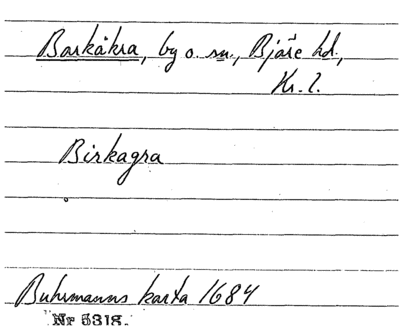 Barkåkra, by o. sn., Bjäre hd.,
Kr. l.
Birkagra
Buhrmanns karta 1684
Nr 5318.